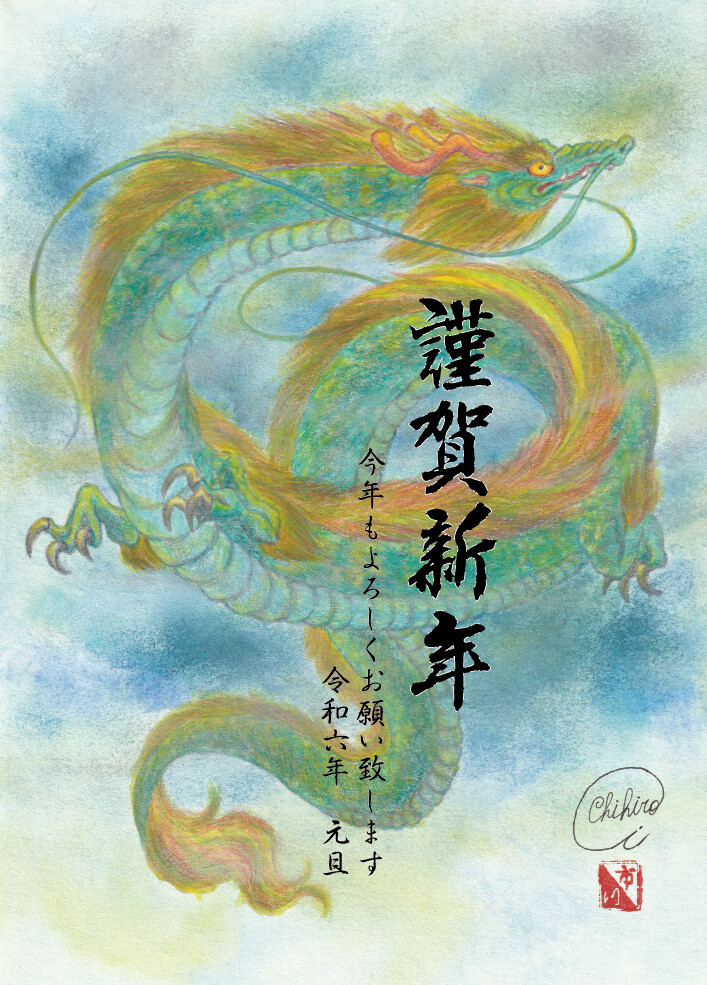 謹賀新年
今年もよろしくお願い致します
令和六年 元旦
Chihiro i
市川